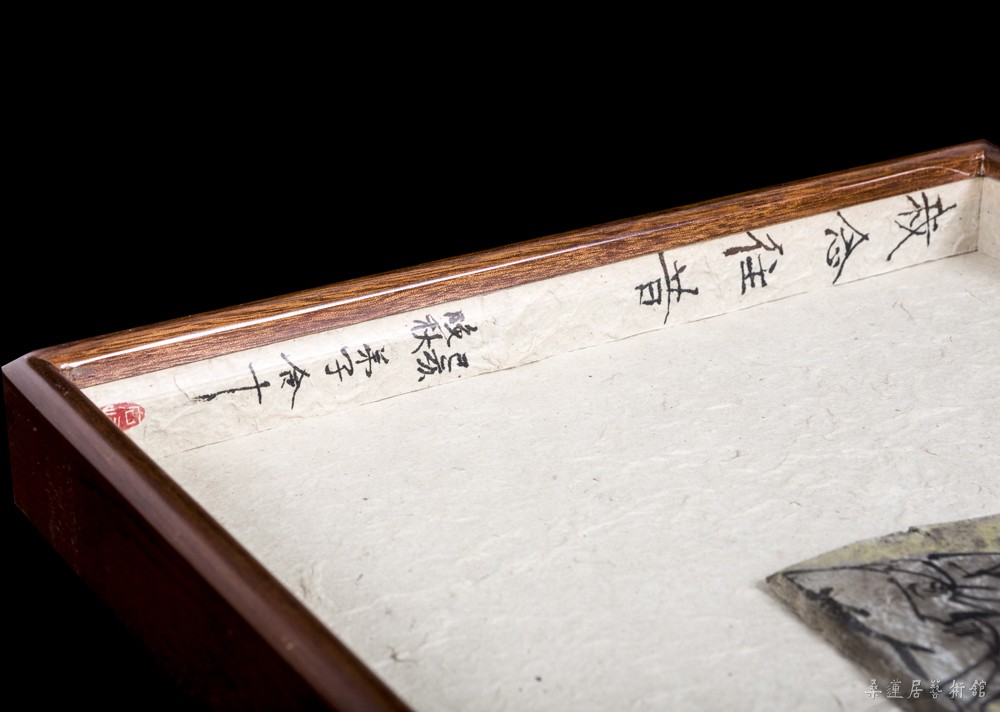 我念往昔
己亥
秋
弟子余十
桑蓮居藝術館